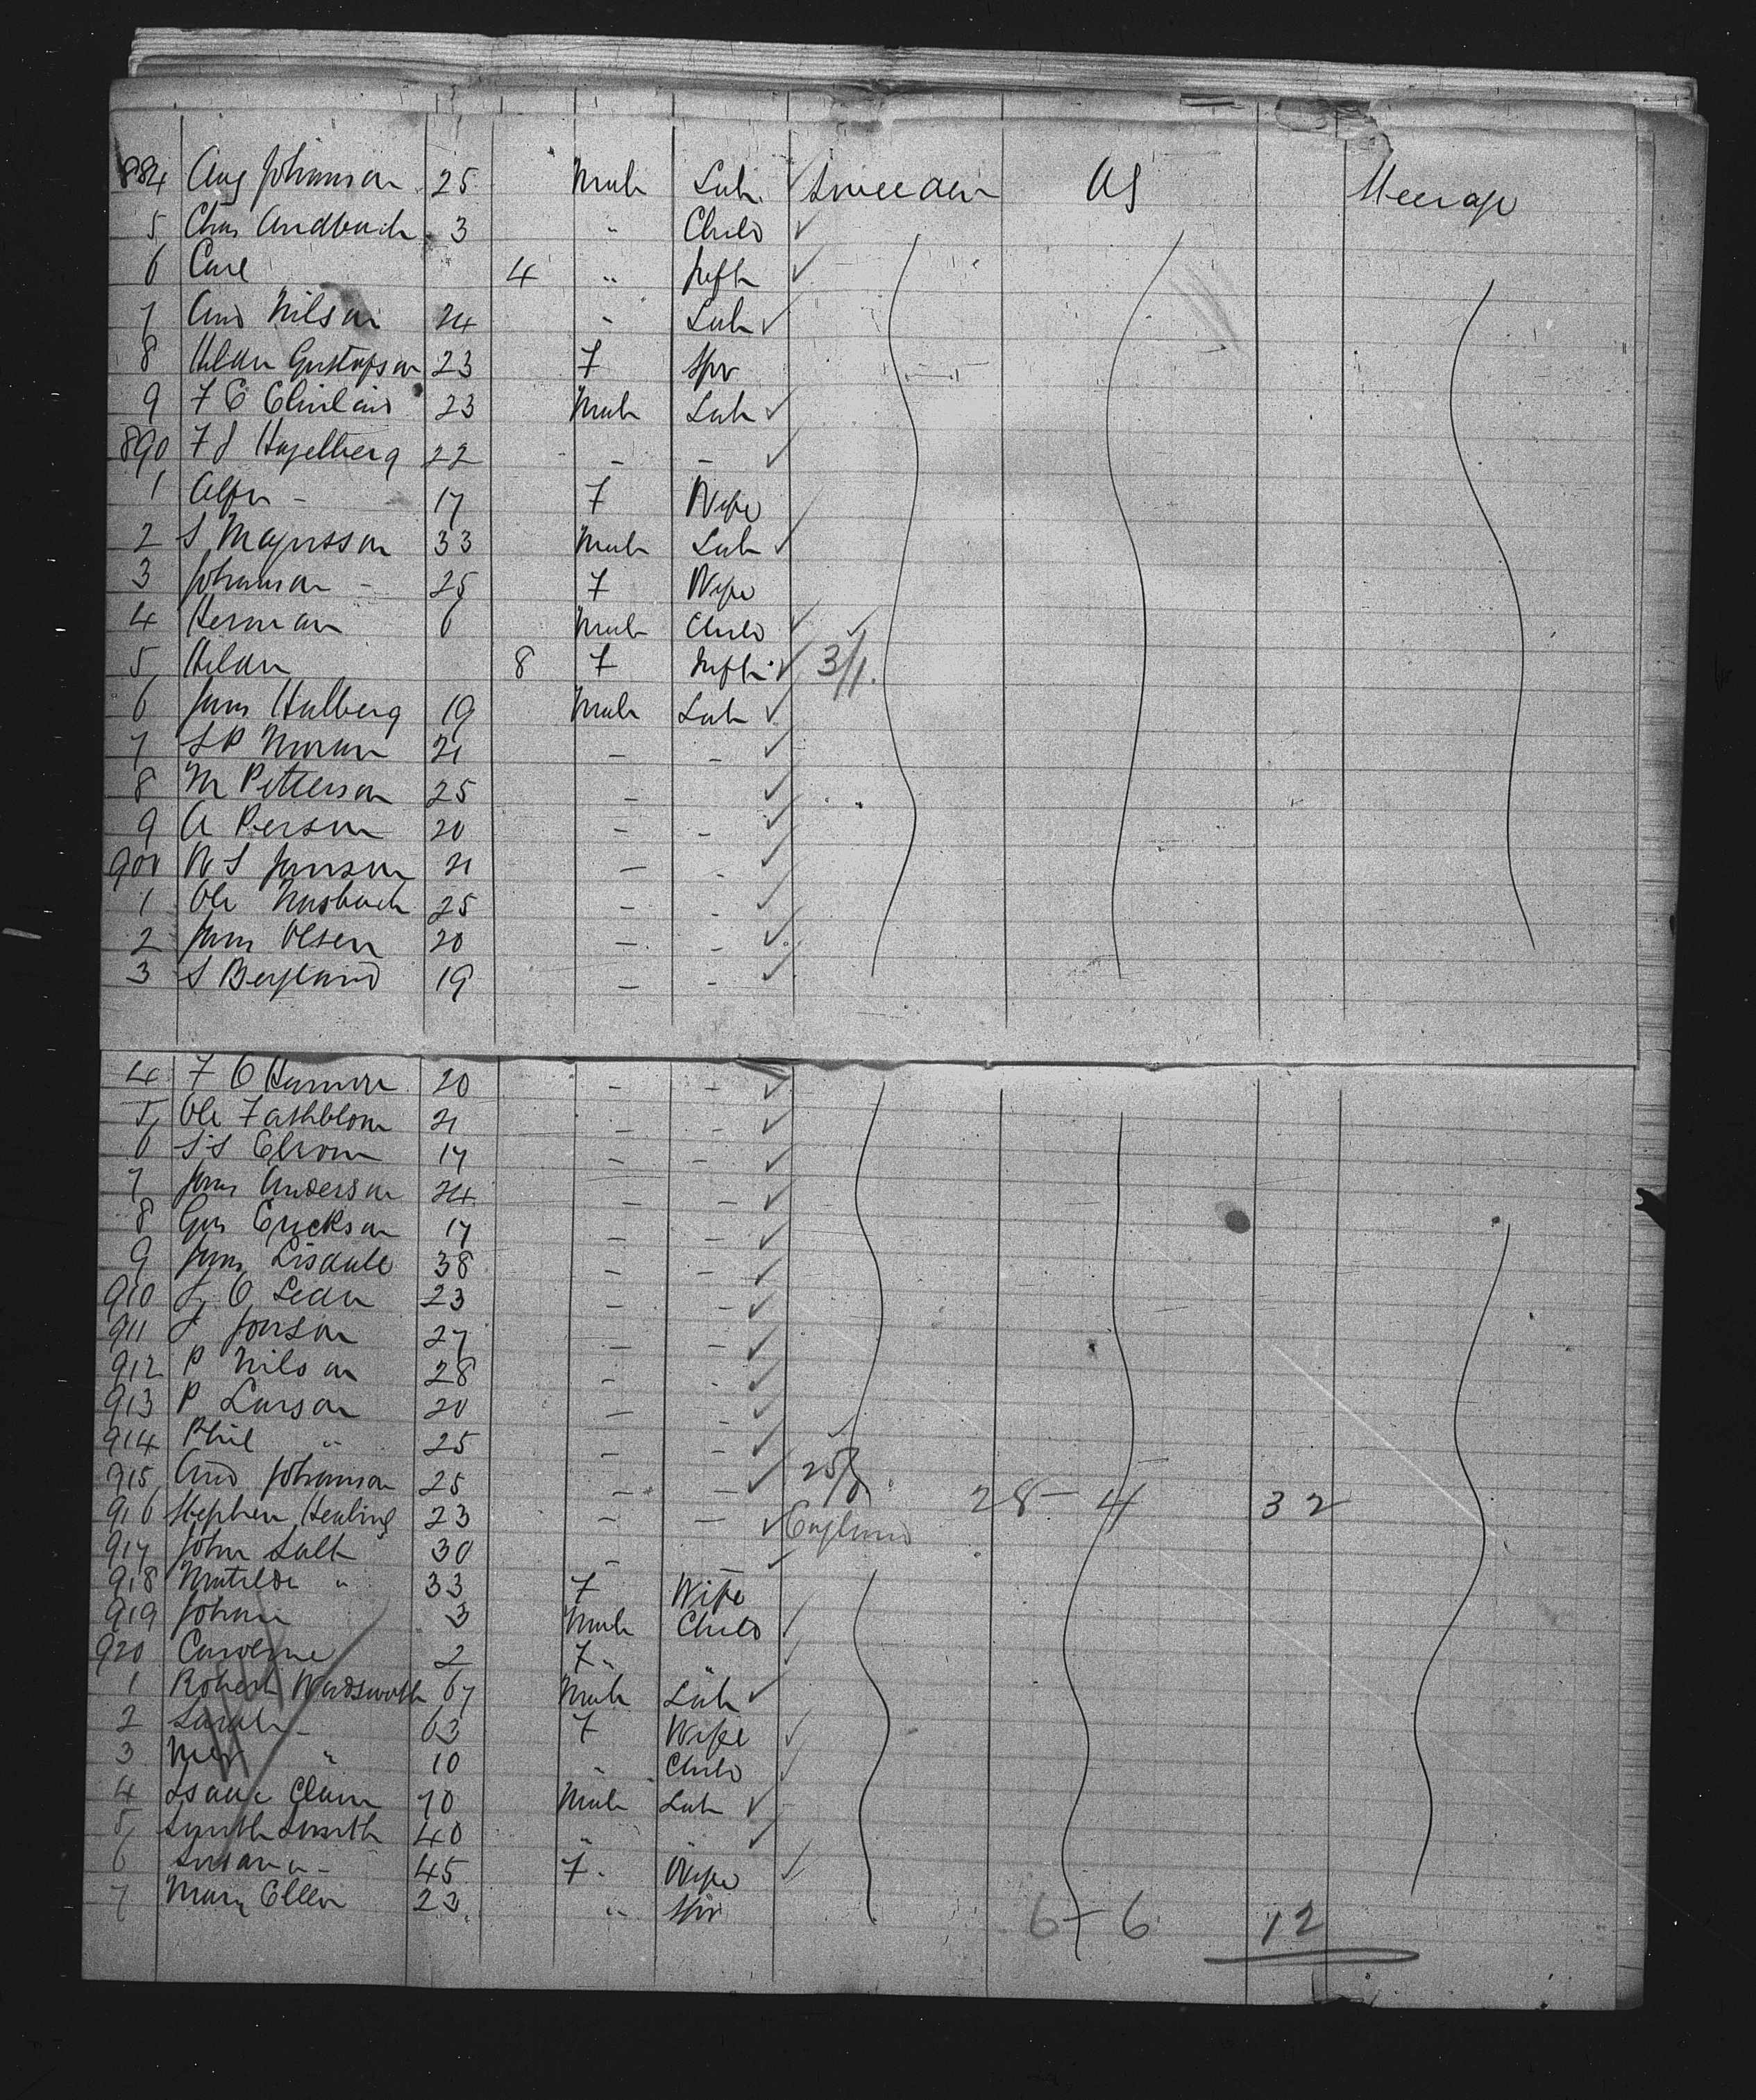 884 Aug Johanson 25 Male Lab. ✓ Sweeden US Steerage
5 Chas Andbach 3 " Child ✓
6 Carl 4 " Inft ✓
7 And Nilson 24 " Lab ✓
8 Hilda Gustafson 23 F Spr
9 F E 23 Male Lab ✓
890 F J Hagelberg 22 - - ✓
1 - 17 F Wife
2 S Magnsson 33 Male Lab ✓
3 Johanna - 25 F Wife
4 Herman 6 Male Child ✓ ✓
5 Hilda 8 F Inft ✓ 3/1.
6 Jans Halberg 19 Male Lab ✓
7 L P 21 - - ✓
8 M Petterson 25 - ✓
9 A Person 20 - - ✓
900 N S Jonson 21 - - ✓
1 Ole 25 - - ✓
2 Jans Olsen 20 - - ✓
3 S Berglund 19 - - ✓
4 F O 20 - - ✓
5 Ole Fathblom 21 - - ✓
6 S S Elrom 17 - - ✓
7 Jans Anderson 24 - - ✓
8 Gus Erickson 17 - - ✓
9 Jans 38 - - ✓
910 O 23 - - ✓
911 J Jonson 27 - - ✓
912 P Nilson 28 - - ✓
913 P Larson 20 - - ✓
914 Phil " 25 - - ✓ ✓
915 And Johanson 25 - - ✓ 25/
916 Stephen Healing 23 - - ✓ England 28 - 4 32
917 John Salt 30 - - ✓
918 Matilda " 33 F Wife
919 Johan 3 Male Child ✓
920 Caroline 2 F " " ✓
1 Robert Wadsworth 67 Male Lab ✓
2 Sarah - 63 F Wife ✓
3 " 10 " Child ✓
4 Isaac 70 Male Lab ✓
5 Smith Smith 40 " " ✓
6 Susana - 45 F " Wife ✓
7 Mary Ellen 23 " Spr 6 - 6 12